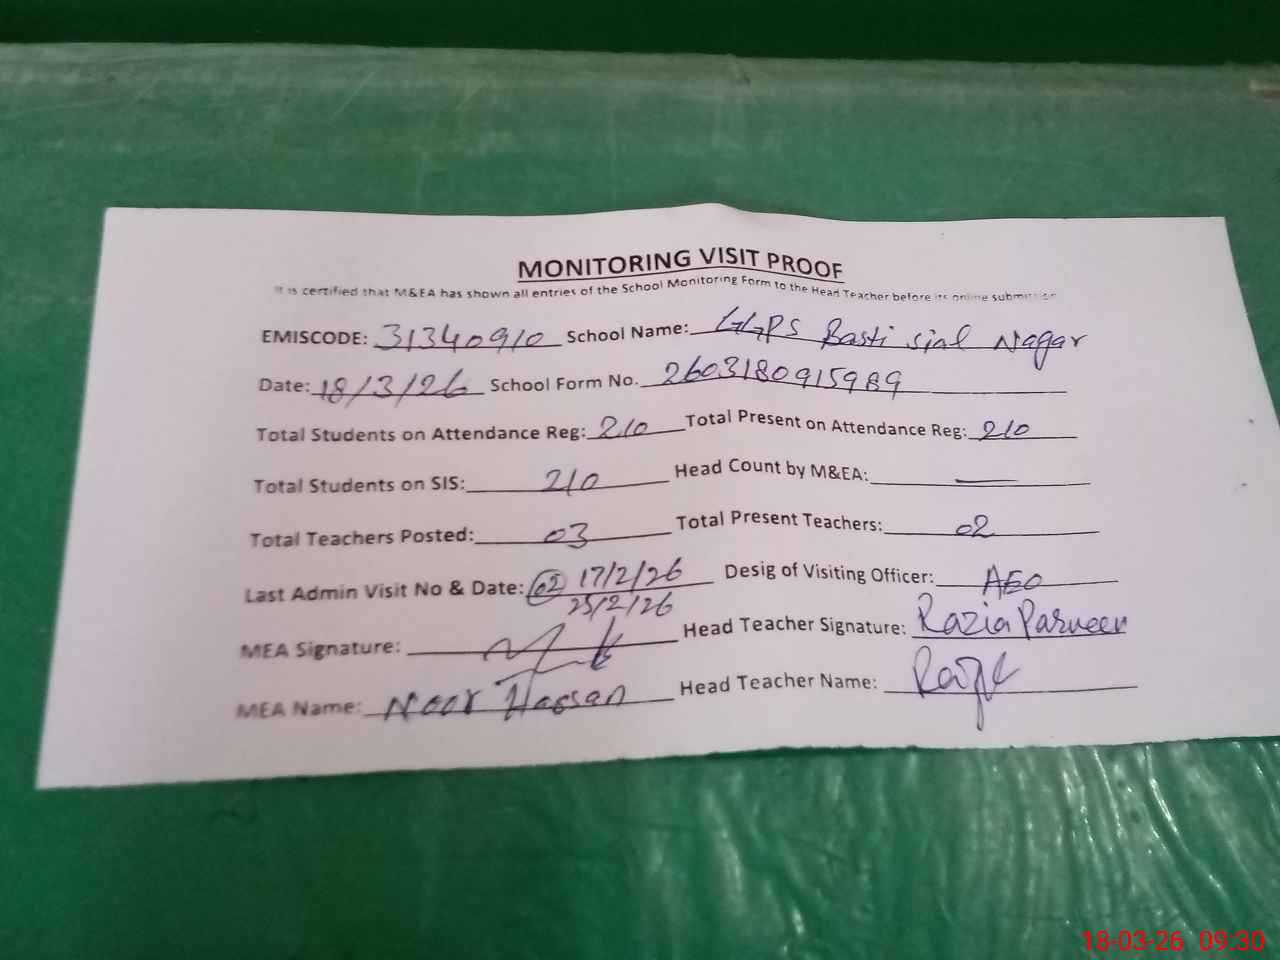 MONITORING VISIT PROOF
It is certified that M&EA has shown all entries of the School Monitoring Form to the Head Teacher before its online submission
EMISCODE: 31340910 School Name: GGPS Basti sial Nagar
Date: 18/3/26 School Form No. 2603180915989
Total Students on Attendance Reg: 210 Total Present on Attendance Reg: 210
Total Students on SIS: 210 Head Count by M&EA: —
Total Teachers Posted: 03 Total Present Teachers: 02
Last Admin Visit No & Date: 02 17/2/26 Desig of Visiting Officer: AEO
25/2/26
MEA Signature: Head Teacher Signature: Razia Parveen
MEA Name: Noor Hassan Head Teacher Name:
18-03-26 09:30